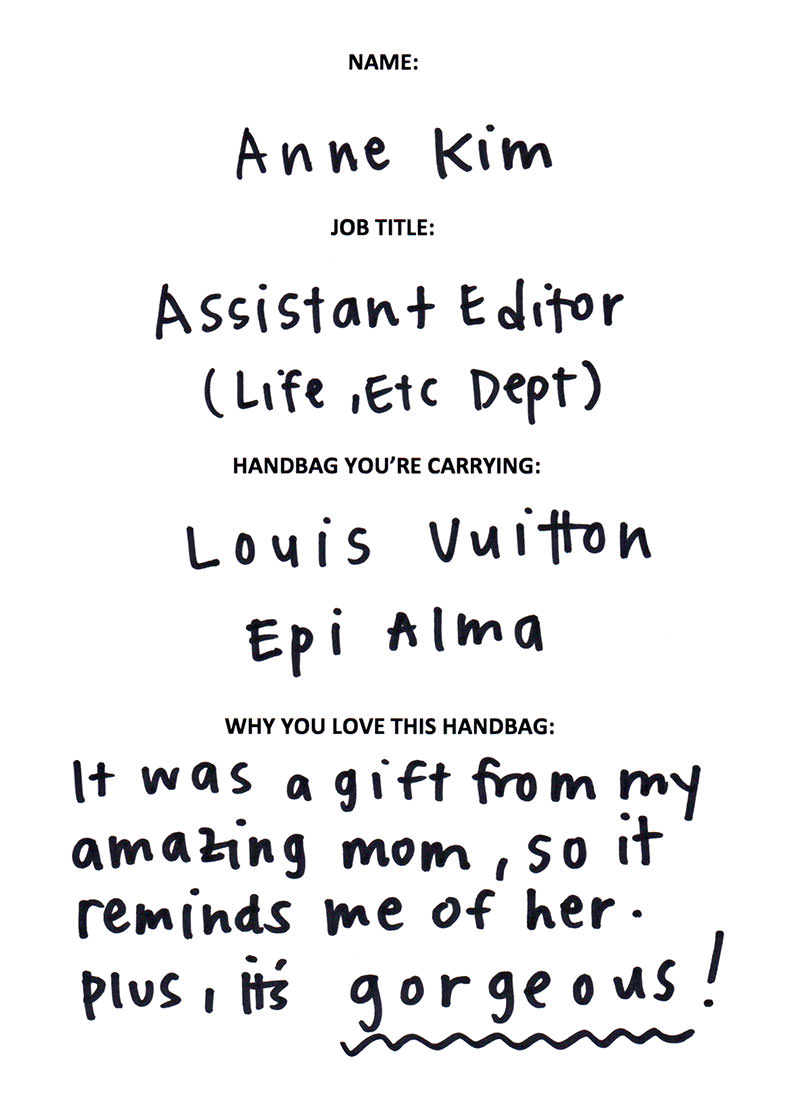 NAME:
Anne Kim
JOB TITLE:
Assistant Editor
(Life, Etc Dept)
HANDBAG YOU'RE CARRYING:
Louis Vuitton
Epi Alma
WHY YOU LOVE THIS HANDBAG:
It was a gift from my
amazing mom, so it
reminds me of her.
plus, it's gorgeous!